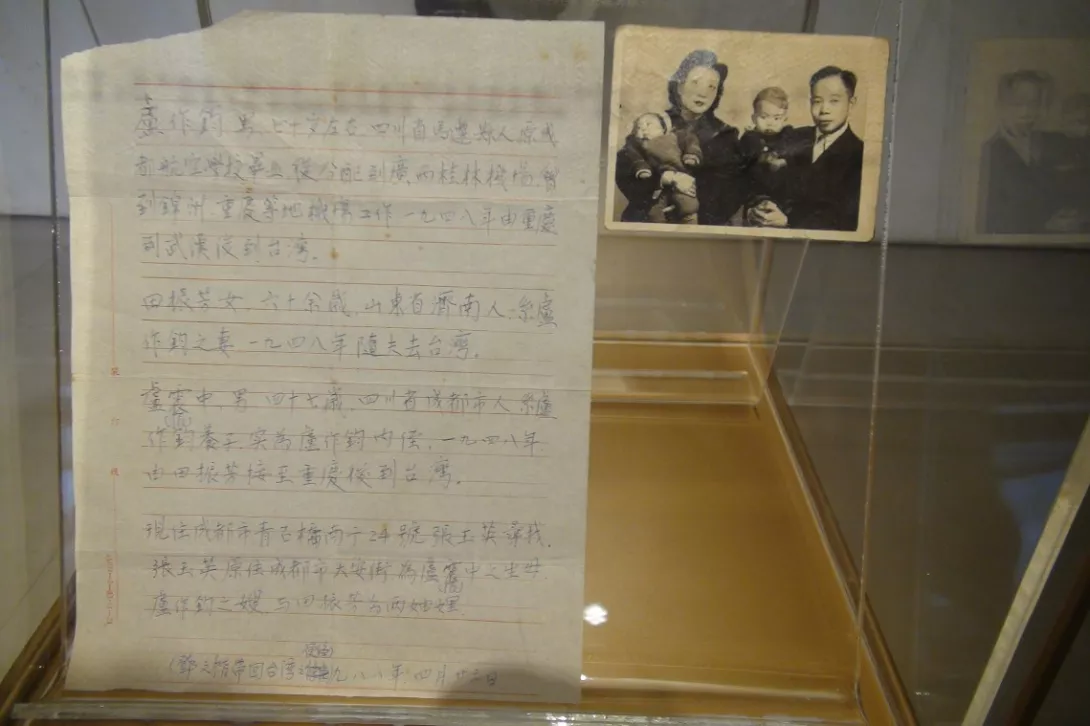 盧作鈞 男 七十歲左右 四川省馬邊縣人 原成
都航空學校畢業 後分配到廣西桂林機場 曾
到錦州 重慶等地機場工作 一九四八年由重慶
到武漢後到台灣。
田振芳 女 六十余歲 山東省濟南人 系盧
作鈞之妻 一九四八年隨夫去台灣。
盧 中 男 四十七歲 四川省成都市人 系盧
作鈞養子 實為盧作鈞內侄, 一九四八年
由田振芳接至重慶後到台灣。
現住成都市青石橋南街24號 張玉英尋找,
張玉英原住成都市大安街 為盧 中之生母
盧作鈞之嫂 与田振芳 妯娌.
帶回台灣 一九八八年四月廿二日